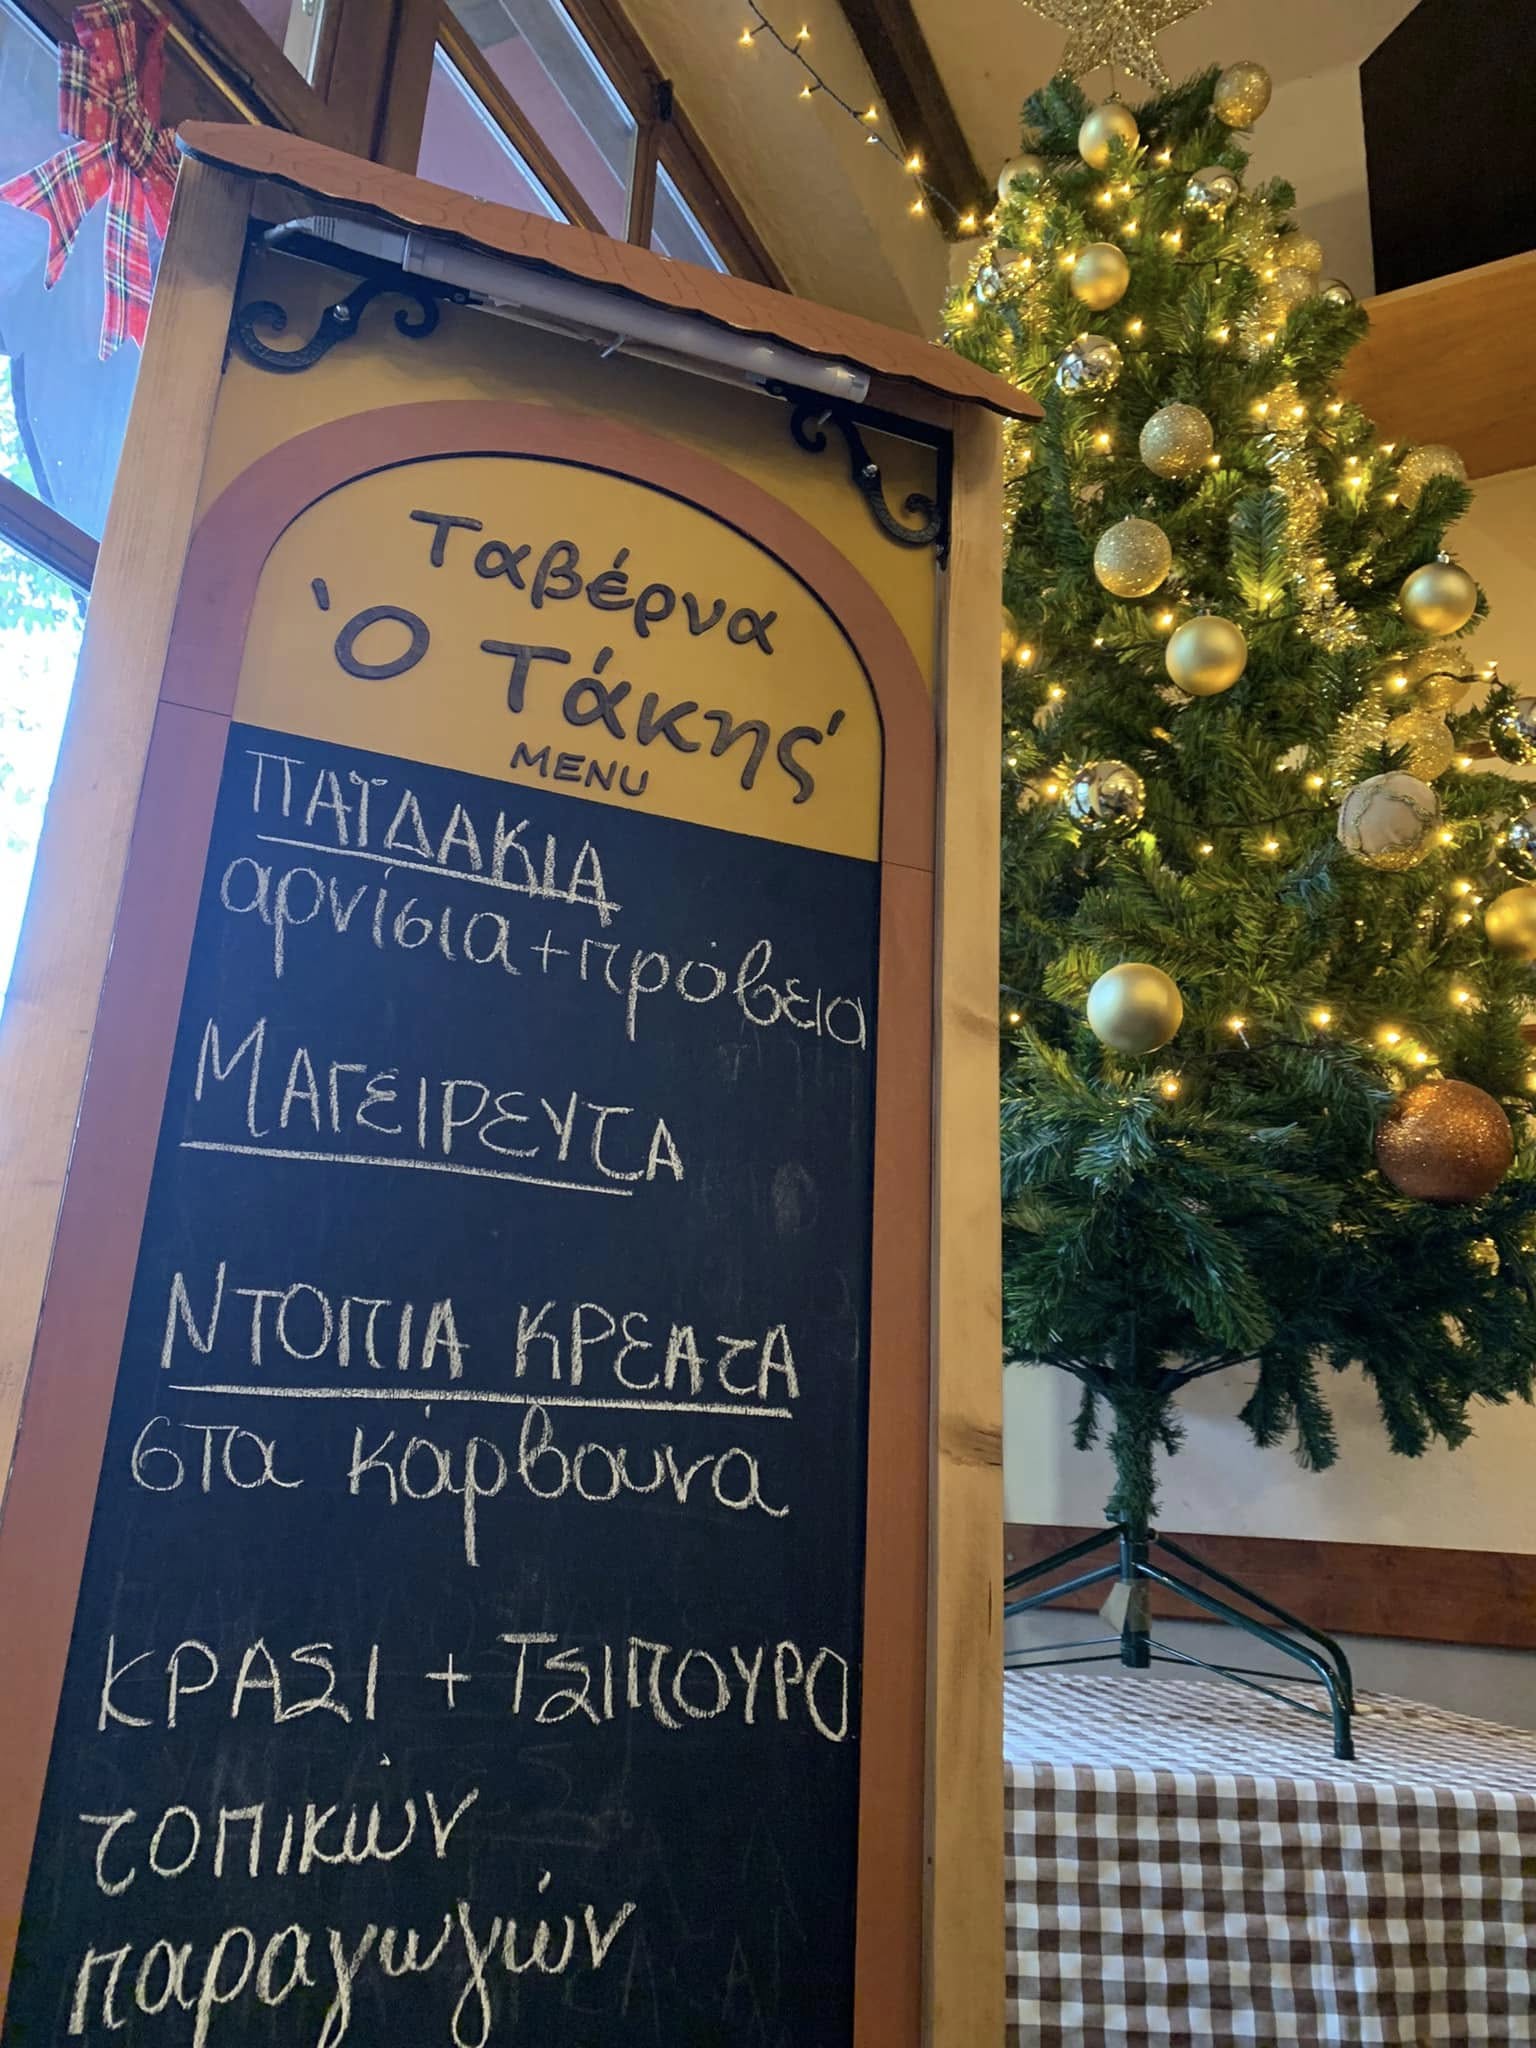 Ταβέρνα
'Ο Τάκης'
MENU
ΠΑΪΔΑΚΙΑ
αρνίσια+πρόβεια
ΜΑΓΕΙΡΕΥΤΑ
ΝΤΟΠΙΑ ΚΡΕΑΤΑ
στα κάρβουνα
ΚΡΑΣΙ + ΤΣΙΠΟΥΡΟ
τοπικών
παραγωγών